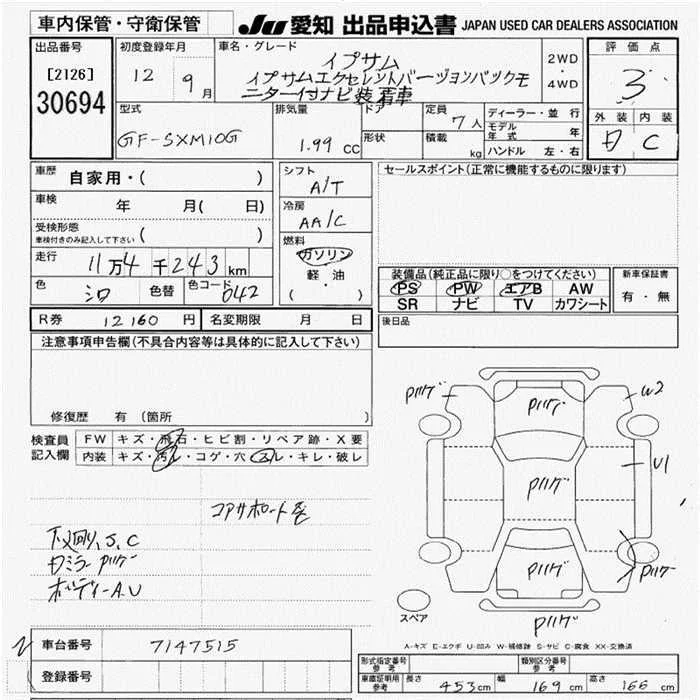 車内保管・守衛保管
JU 愛知 出品申込書 JAPAN USED CAR DEALERS ASSOCIATION
出品番号
[2126]
30694
初度登録年月
12 年 9 月
車名・グレード
イプサム
イプサムエクセレントバージョンバックモ
ニター付ナビ装着車
2WD
・
4WD
評価点
3
外装 内装
D C
型式
GF-SXM10G
排気量
1.99 CC
ドア
形状
定員 7人
積載 kg
ディーラー・並行
モデル年式 年
ハンドル 左・右
車歴 自家用・( )
車検 年 月( 日)
受検形態
車検付きのみ記入して下さい ( )
走行 11万4千243 km
色 シロ 色替 色コード 042
シフト
A/T
冷房
AA/C
燃料
ガソリン
軽・油
( ・ )
セールスポイント(正常に機能するものに限ります)
装備品(純正品に限り○をつけてください)
PS PW エアB AW
SR ナビ TV カワシート
新車保証書
有・無
R券 12160 円 名変期限 月 日
後日品
注意事項申告欄(不具合内容等は具体的に記入して下さい)
修復歴 有 (箇所 )
検査員
記入欄
FW キズ・飛石・ヒビ割・リペア跡・X要
内装 キズ・汚レ・コゲ・穴・スレ・キレ・破レ
コアサポート歪
下廻り、S、C
Dミラー Pハゲ
ボディーA.U
Pハゲ
Pハゲ
W2
Pハゲ
U1
Pハゲ
Pハゲ
Pハゲ
スペア
A-キズ E-エクボ U-凹み W-補修跡 S-サビ C-腐食 XX-交換済
車台番号 7147515
登録番号
形式指定番号
参考
類別区分番号
参考
車庫証明用
参考
長さ 453 cm 幅 169 cm 高さ 166 cm